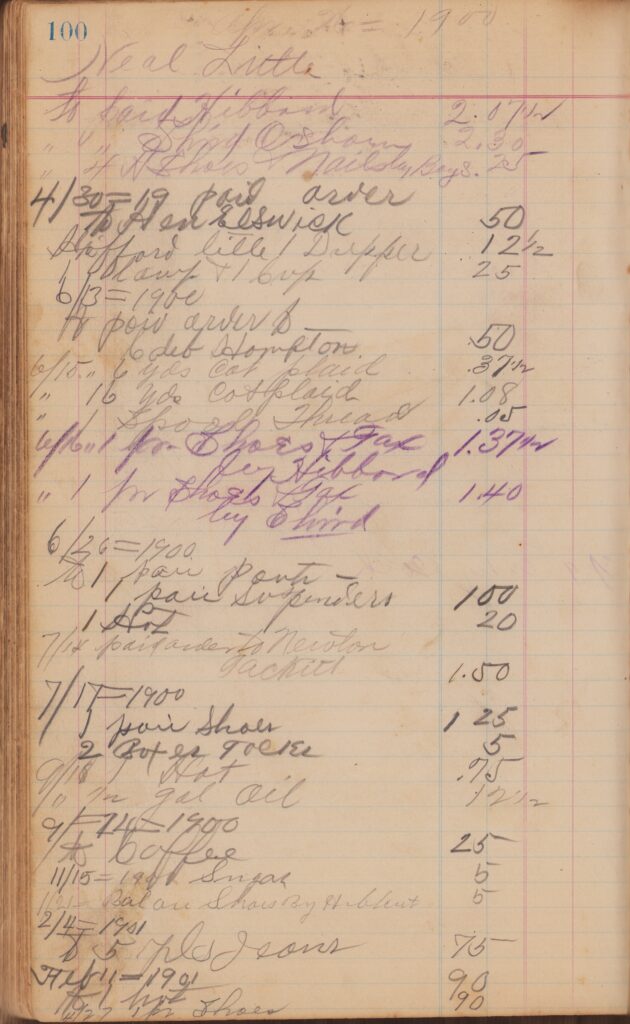 100
1900
Neal Little
to paid Hibbard 2.07½
" " Third Osborn 2.30
" " 4 H Shoes & Nails by Boys. 25
4/30=19 paid order
To Hen Elswick 50
1 Dipper 12½
1 lamp & 1 Cup 25
6/13=1900
To paid order to
Hampton 50
6/15 " 6 yds Cot plaid .37½
" 16 yds Cotplaid 1.08
" 1 Spool Thread .05
6/16 " 1 pr Shoes & Tax 1.37½
by Hibbard
" 1 pr Shoes & Tax 1.40
by Third
6/26=1900
To 1 pair pants
1 pair Suspenders 100
1 Hat 20
7/14 paid order to Newton
Tackitt 1.50
7/17=1900
1 pair Shoes 1 25
2 Boxes Tacks 5
9/18 1 Hat .75
" ½ gal Oil 12½
9/24=1900
To Coffee 25
11/15=1900 Sugar 5
Bal on Shoes By Hibbert 5
2/4=1901
To 5 yds Jeans 75
Feb 11=1901
To 1 hat 90
1 pr Shoes 90